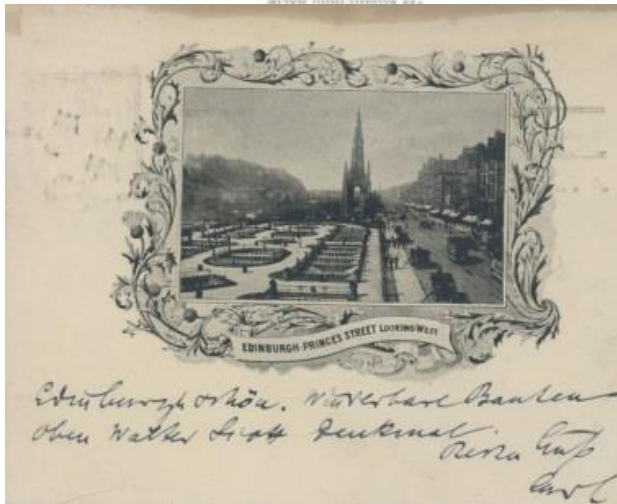 EDINBURGH-PRINCES STREET LOOKING WEST
Edinburgh schön. Wunderbare Bauten
oben Walter Scott Denkmal
Gruß
Carl